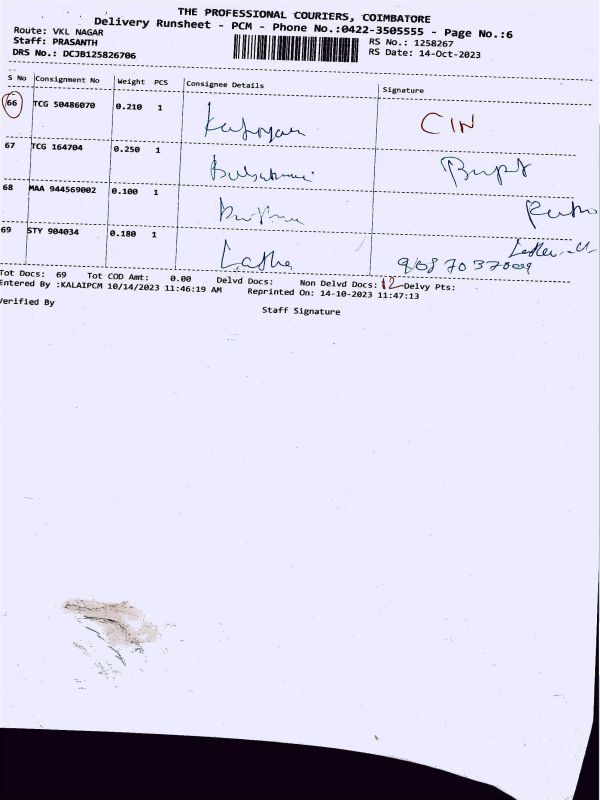 THE PROFESSIONAL COURIERS, COIMBATORE
Delivery Runsheet - PCM - Phone No.:0422-3505555 - Page No.:6
Route: VKL NAGAR RS No.: 1258267
Staff: PRASANTH RS Date: 14-Oct-2023
DRS No.: DCJB125826706
S No Consignment No Weight PCS Consignee Details Signature
66 TCG 50486070 0.210 1 CIN
67 TCG 164704 0.250 1
68 MAA 944569002 0.100 1
69 STY 904034 0.180 1 Latha
Tot Docs: 69 Tot COD Amt: 0.00 Delvd Docs: Non Delvd Docs: 12 Delvy Pts:
Entered By :KALAIPCM 10/14/2023 11:46:19 AM Reprinted On: 14-10-2023 11:47:13
Verified By
Staff Signature